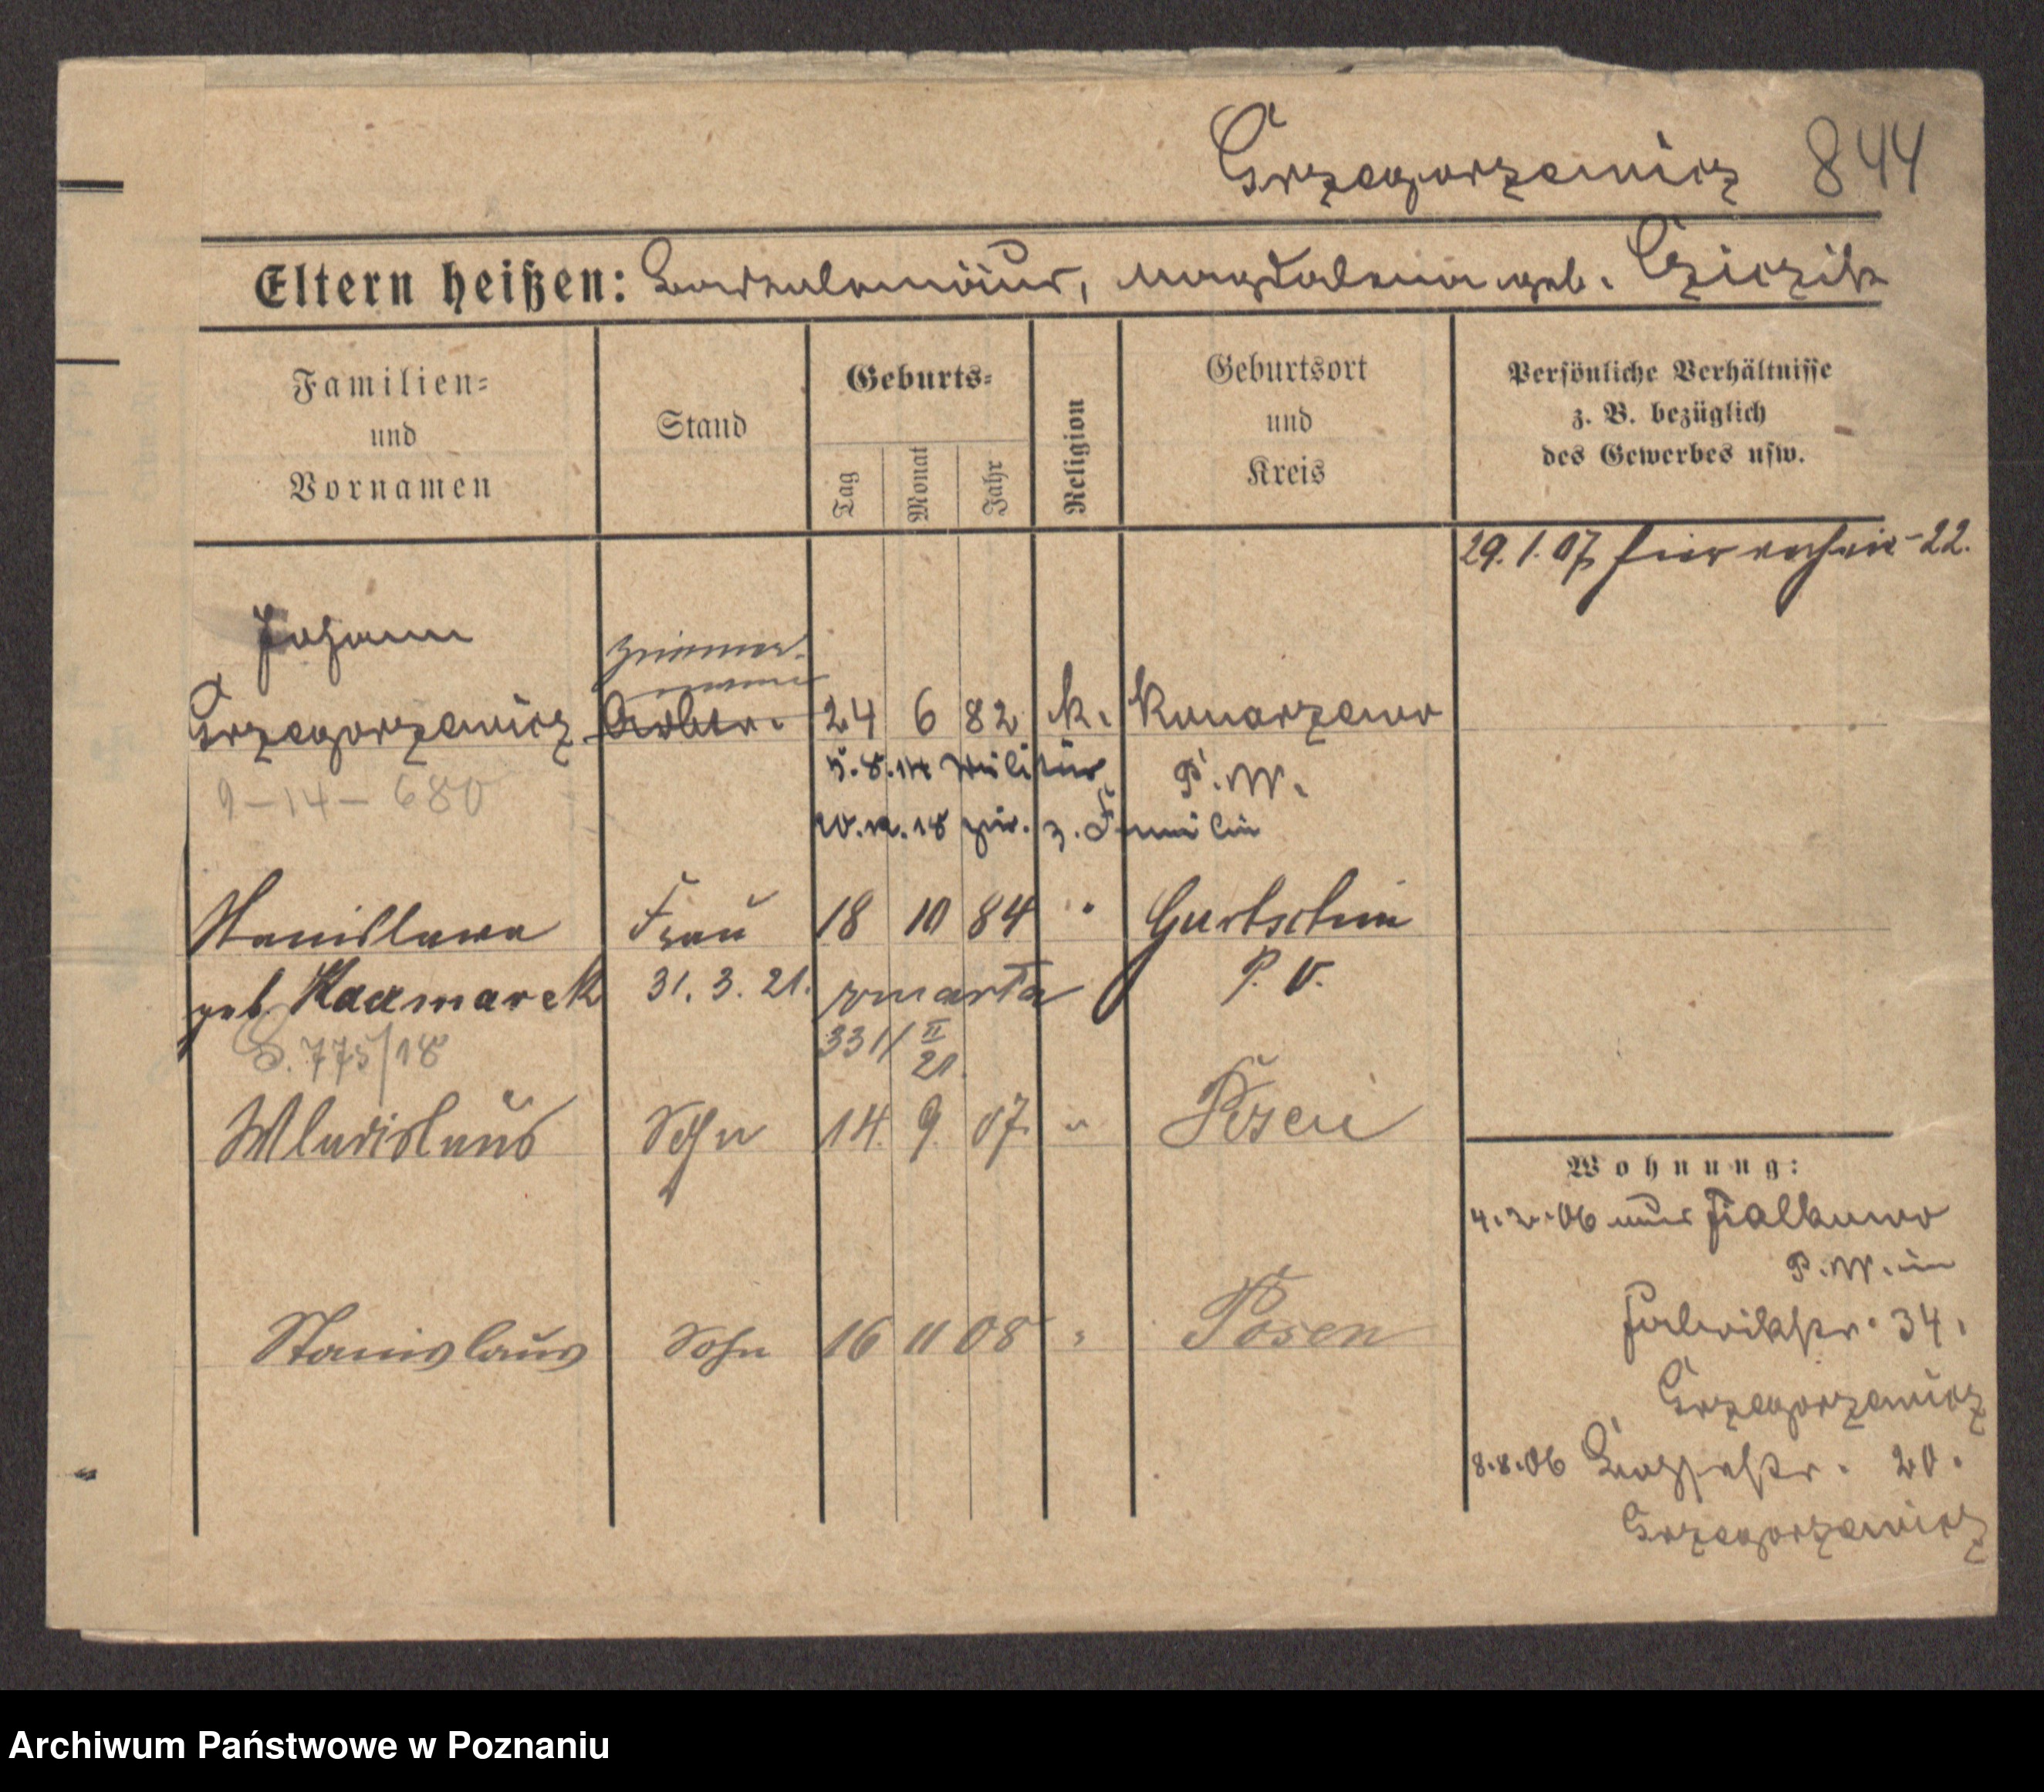 Grzegorzewicz 844
Eltern heißen: Bartholomäus, Magdalena geb.
Familien- und Vornamen
Stand
Geburts-
Tag Monat Jahr
Religion
Geburtsort und Kreis
Persönliche Verhältnisse
z. B. bezüglich
des Gewerbes usw.
29.1.07 hier
Johann
Zimmer-
mann
Grzegorzewicz Arbtr. 24 6 82 k. Konarzewo
9-14-680
5.8.14 Militär P.W.
zur. z. Familie
Stanislawa Frau 18 10 84 " Gurtschin
geb. Kaczmarek 31.3.21. zmarła P.O.
S. 775/18
331/II 21.
Wladislaus Sohn 14. 9. 07. " Posen
Stanislaus Sohn 16 11 08 " Posen
Wohnung:
4.2.06 aus Fialkowo
P.W. in
Fabrikstr. 34.
Grzegorzewicz
8.8.06 20.
Grzegorzewicz
Archiwum Państwowe w Poznaniu